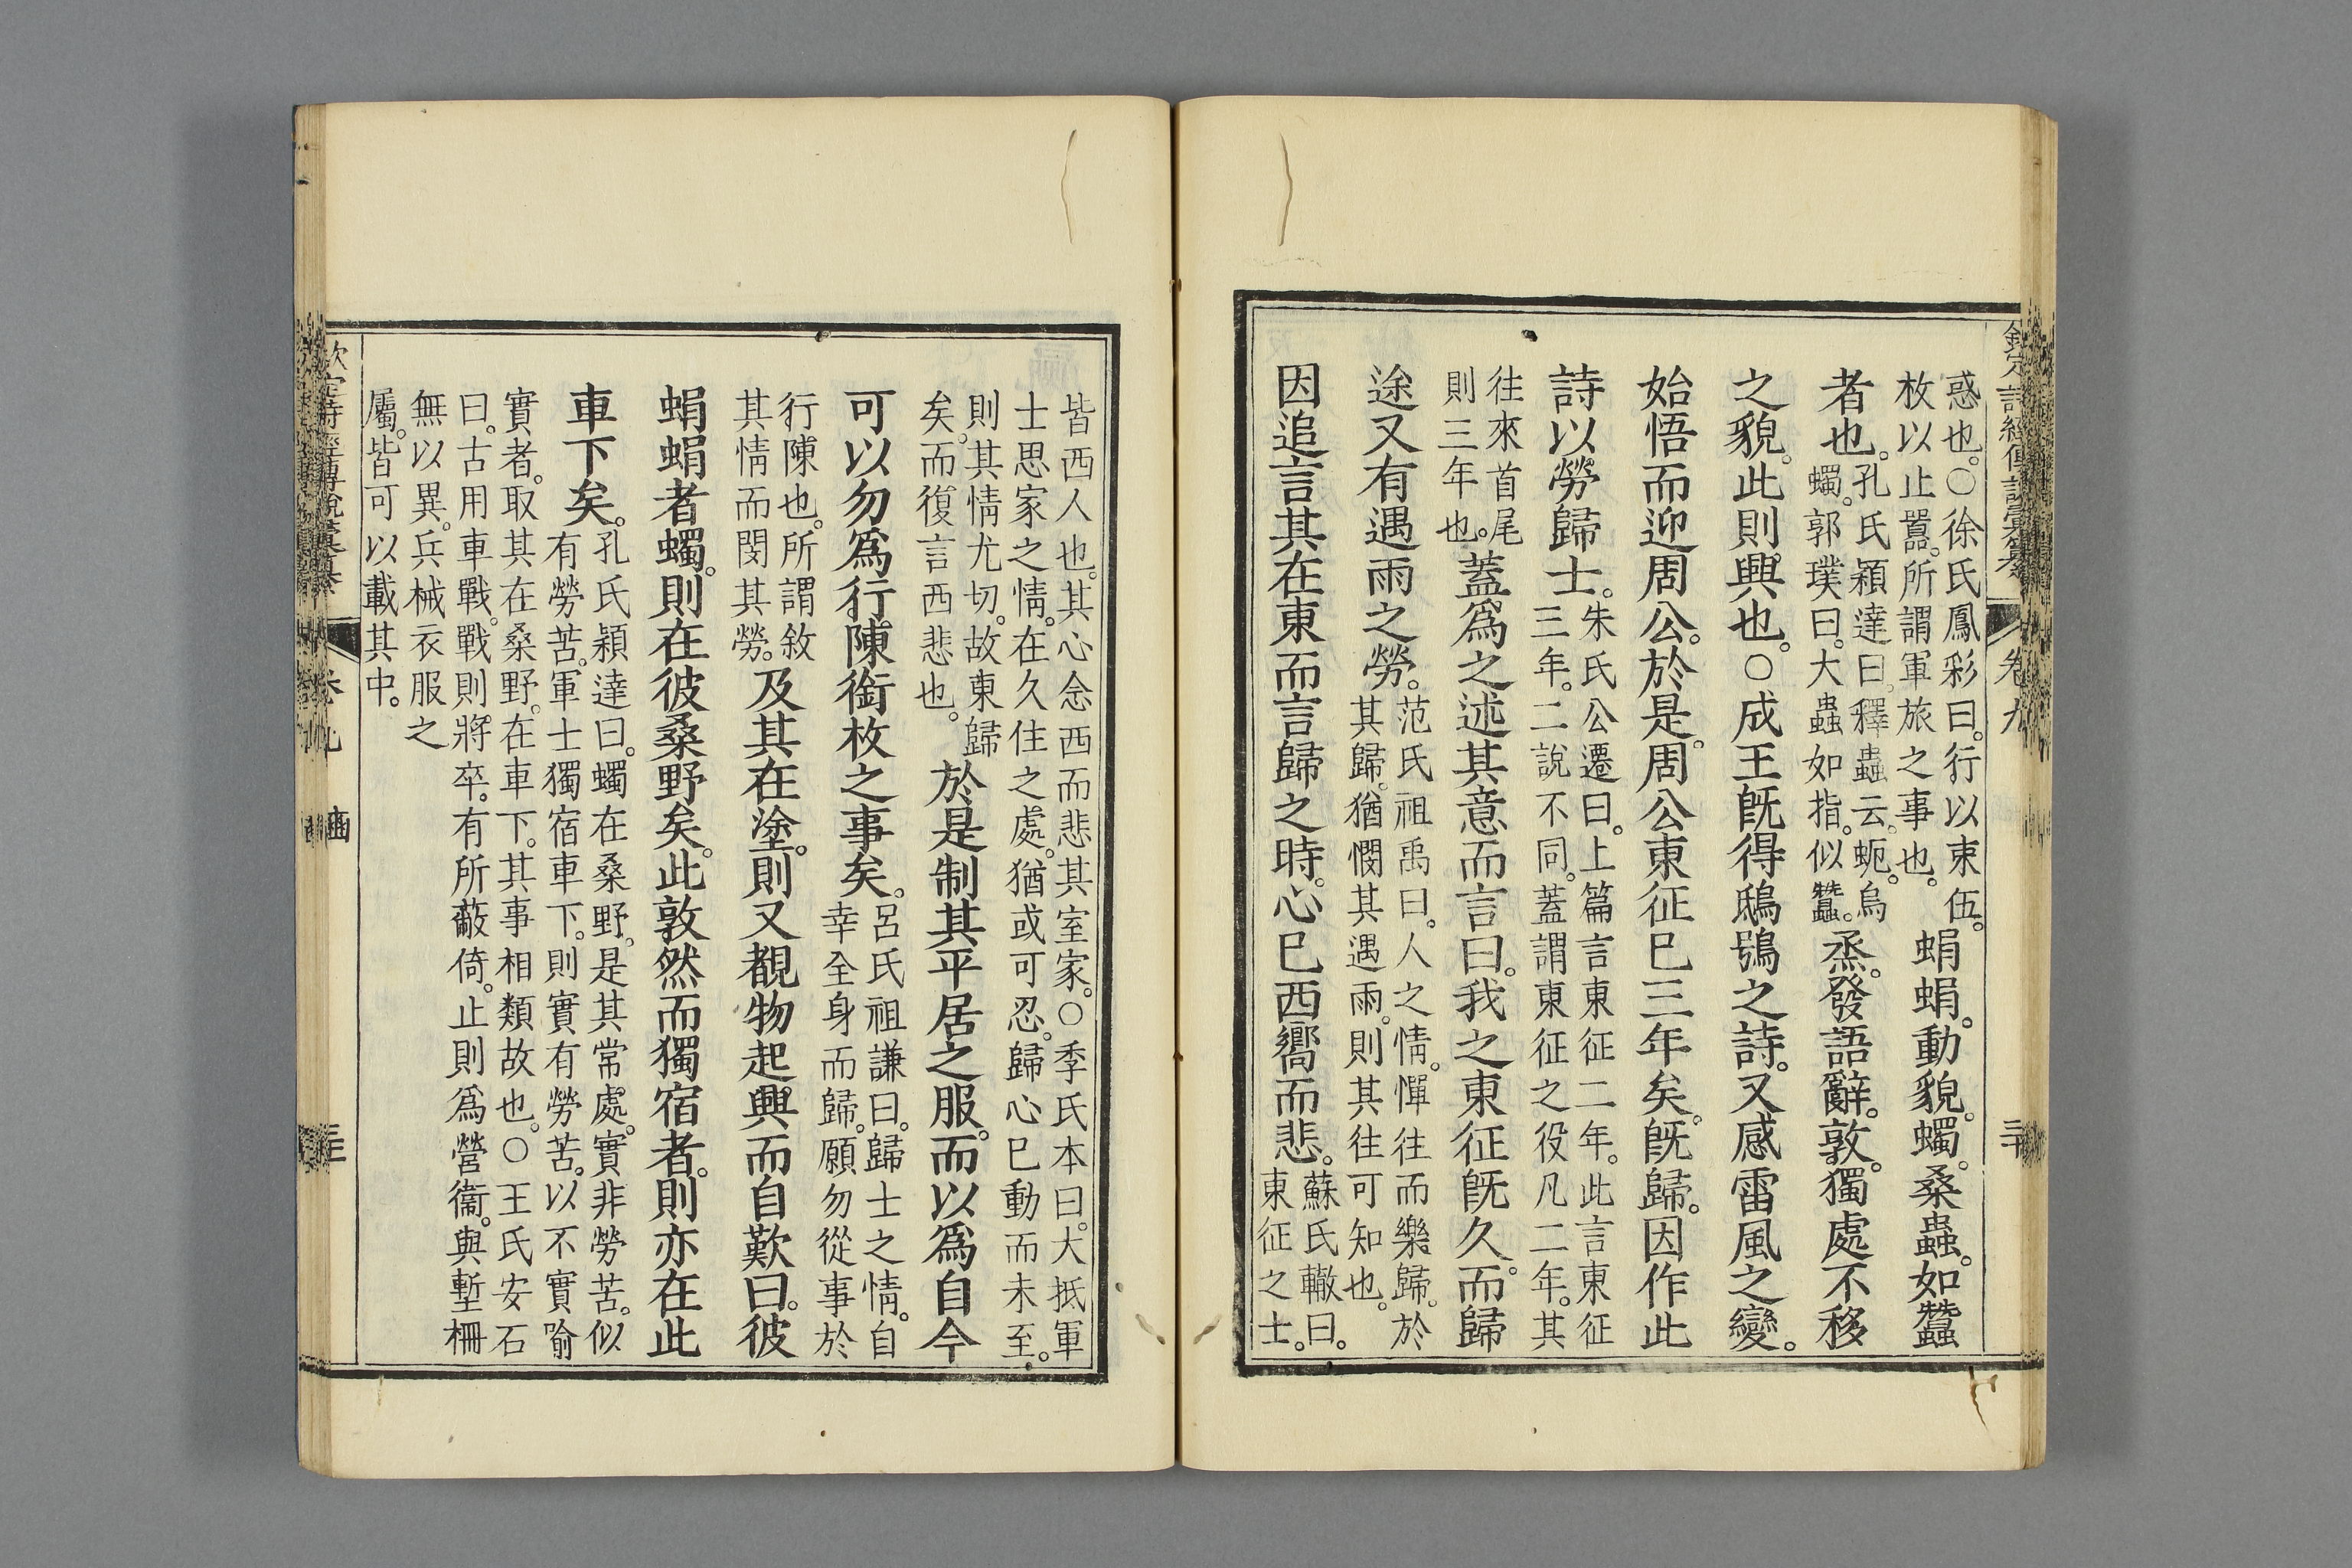 欽定詩經傳說彙纂 卷九 三十
惑也。○徐氏鳳彩曰。行以束伍。
枚以止囂。所謂軍旅之事也。
蜎蜎。動貌。蠋。桑蟲。如蠶
者也。
孔氏穎達曰。釋蟲云。蚅。烏
蠋。郭璞曰。大蟲如指。似蠶。
烝。發語辭。敦。獨處不移
之貌。此則興也。○成王旣得鴟鴞之詩。又感雷風之變。
始悟而迎周公。於是周公東征已三年矣。旣歸。因作此
詩以勞歸士。
朱氏公遷曰。上篇言東征二年。此言東征
三年。二說不同。蓋謂東征之役凡二年。其
往來首尾
則三年也。
蓋爲之述其意而言曰。我之東征旣久。而歸
途又有遇雨之勞。
范氏祖禹曰。人之情。憚往而樂歸。於
其歸。猶憫其遇雨。則其往可知也。
因追言其在東而言歸之時。心已西嚮而悲。
蘇氏轍曰。
東征之士。
皆西人也。其心念西而悲其室家。○季氏本曰。大抵軍
士思家之情。在久住之處。猶或可忍。歸心已動而未至。
則其情尤切。故東歸
矣。而復言西悲也。
於是制其平居之服。而以爲自今
可以勿爲行陳銜枚之事矣。
呂氏祖謙曰。歸士之情。自
幸全身而歸。願勿從事於
行陳也。所謂敘
其情而閔其勞。
及其在塗。則又覩物起興而自歎曰。彼
蜎蜎者蠋。則在彼桑野矣。此敦然而獨宿者。則亦在此
車下矣。
孔氏穎達曰。蠋在桑野。是其常處。實非勞苦。似
有勞苦。軍士獨宿車下。則實有勞苦。以不實喻
實者。取其在桑野。在車下。其事相類故也。○王氏安石
曰。古用車戰。戰則將卒。有所蔽倚。止則爲營衞。與塹柵
無以異。兵械衣服之
屬。皆可以載其中。
欽定詩經傳說彙纂 卷九 豳